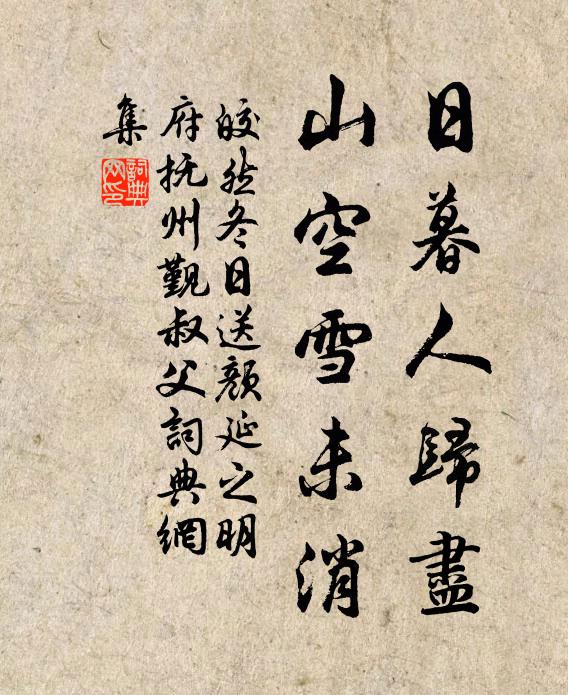 日暮人歸盡
山空雪未消
皎然冬日送顏延之明
府抚州觐叔父詞典網
集
詞典網印